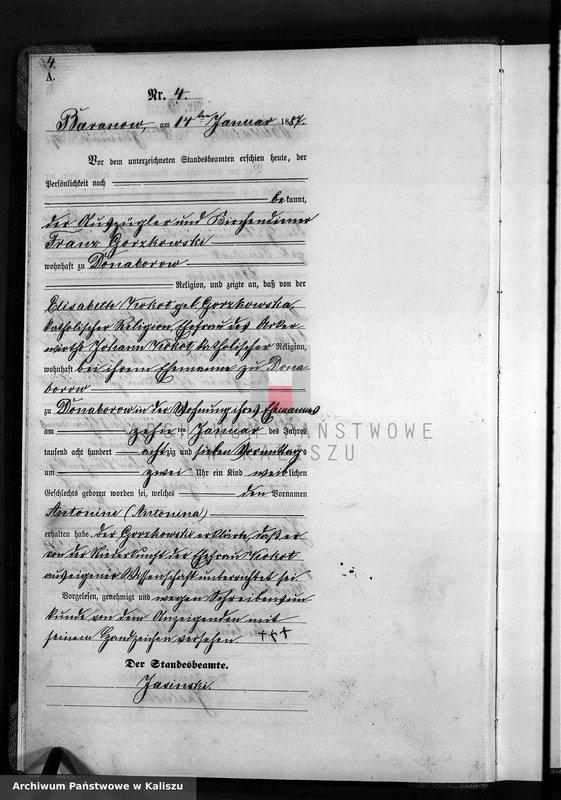 4.
A.
Nr. 4.
Baranow, am 14ten Januar 1887.
Vor dem unterzeichneten Standesbeamten erschien heute, der
Persönlichkeit nach
bekannt,
der Auszügler und Kirchendiener
Franz Gorzkowski
wohnhaft zu Donaborow
Religion, und zeigte an, daß von der
Elisabeth Kokot geb. Gorzkowska,
katholischer Religion, Ehefrau des Acker-
wirths Johann Kokot, katholischer Religion,
wohnhaft bei ihrem Ehemanne zu Dona-
borow
zu Donaborow in der Wohnung ihres Ehemannes
am zehn ten Januar des Jahres
tausend acht hundert achtzig und sieben Vormittags
um zwei Uhr ein Kind weiblichen
Geschlechts geboren worden sei, welches den Vornamen
Antonine (Antonina)
erhalten habe. der Gorzkowski erklärte, daß er
von der Niederkunft der Ehefrau Kokot
aus eigener Wissenschaft unterrichtet sei.
Vorgelesen, genehmigt und wegen Schreibensun-
kunde von dem Anzeigenden mit
seinem Handzeichen versehen. +++
Der Standesbeamte.
Jasinski.
PAŃSTWOWE
KALISZU
Archiwum Państwowe w Kaliszu